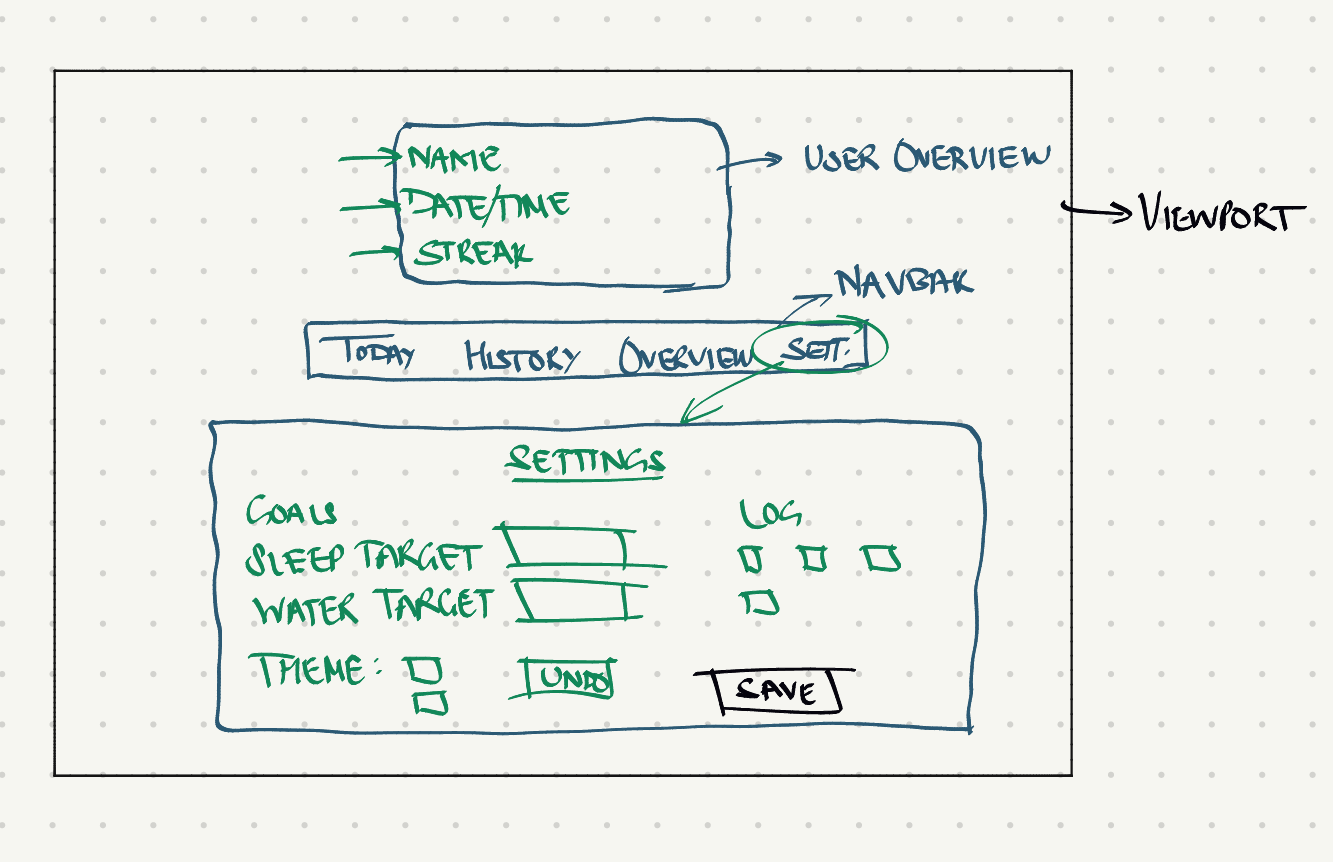 NAME
DATE/TIME
STREAK
USER OVERVIEW
VIEWPORT
NAVBAR
TODAY HISTORY OVERVIEW SETT.
SETTINGS
GOALS LOG
SLEEP TARGET
WATER TARGET
THEME: UNDO SAVE